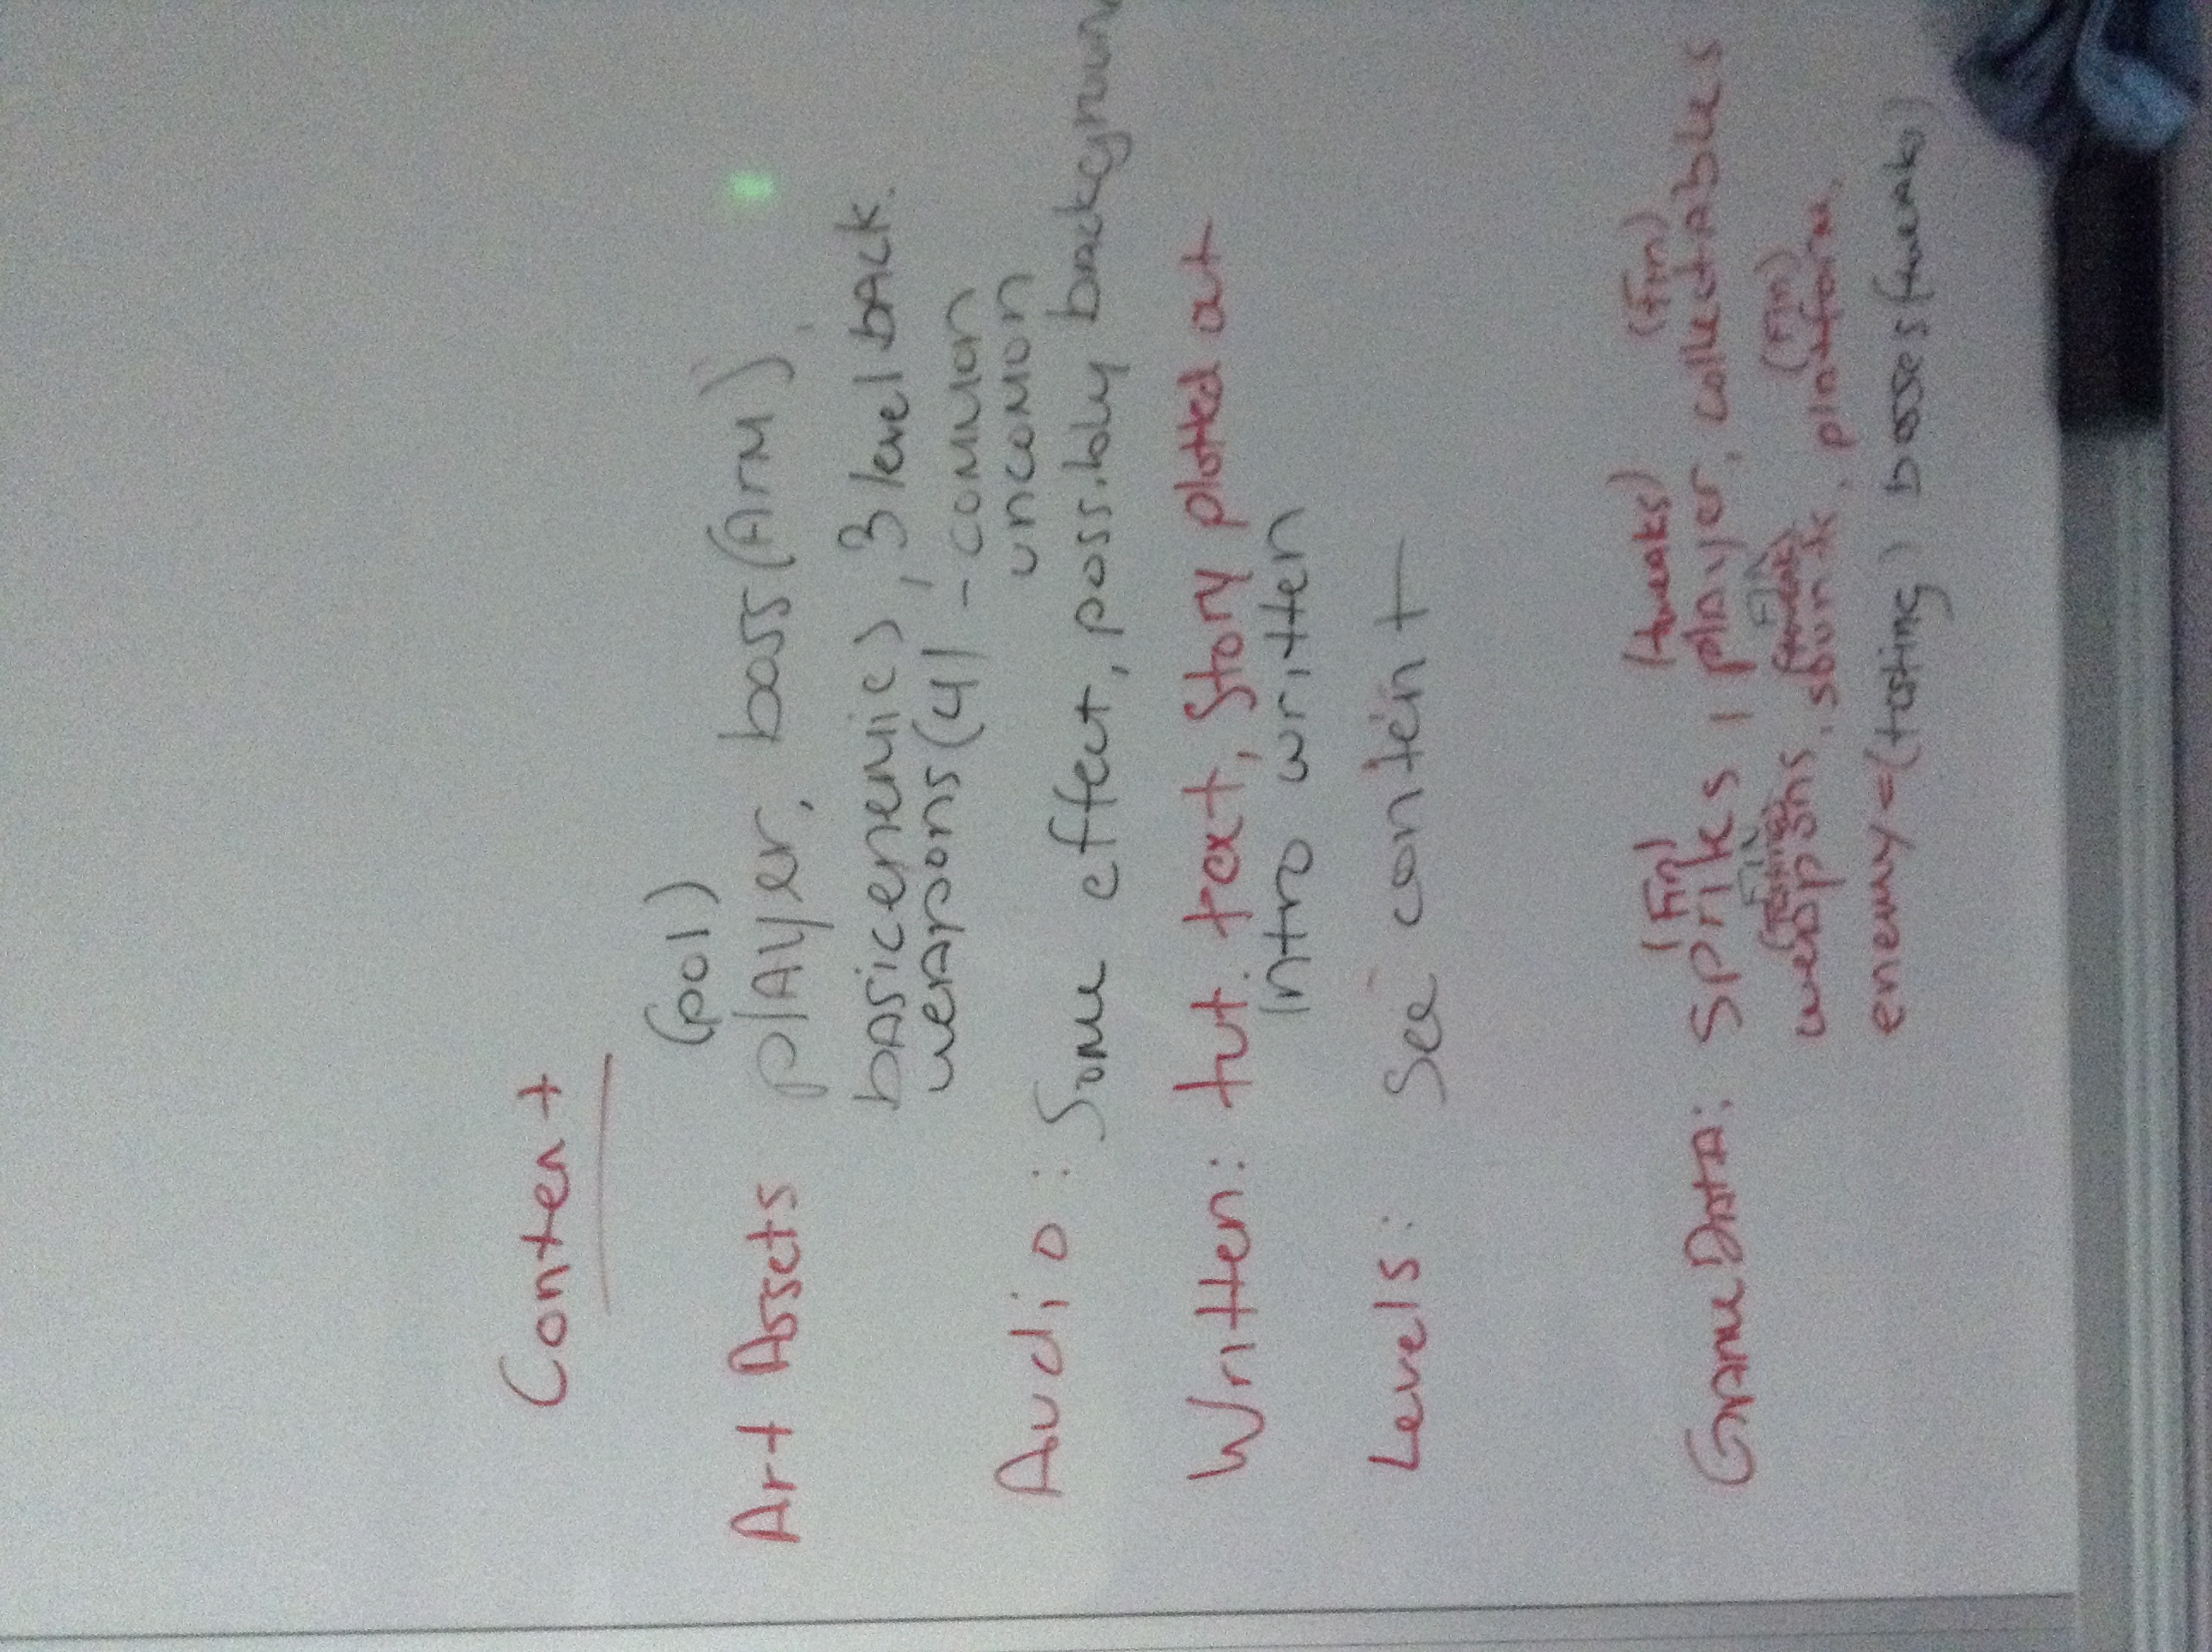 Content
(pol)
Art Assets player, boss (Arm),
basic enemies, 3 level back.
weapons (4) - common
uncomon
Audio: Some effect, possibly background
Written: tut. text, Story plotted out
Intro written
Levels: See content
(Fin) (tweaks) (Fin)
Game Data: spriks, player, collectables
FIN FIN
(testing) (tweak) (Fin)
weapons, platform,
enemy = (testing) bosses (tweaks)